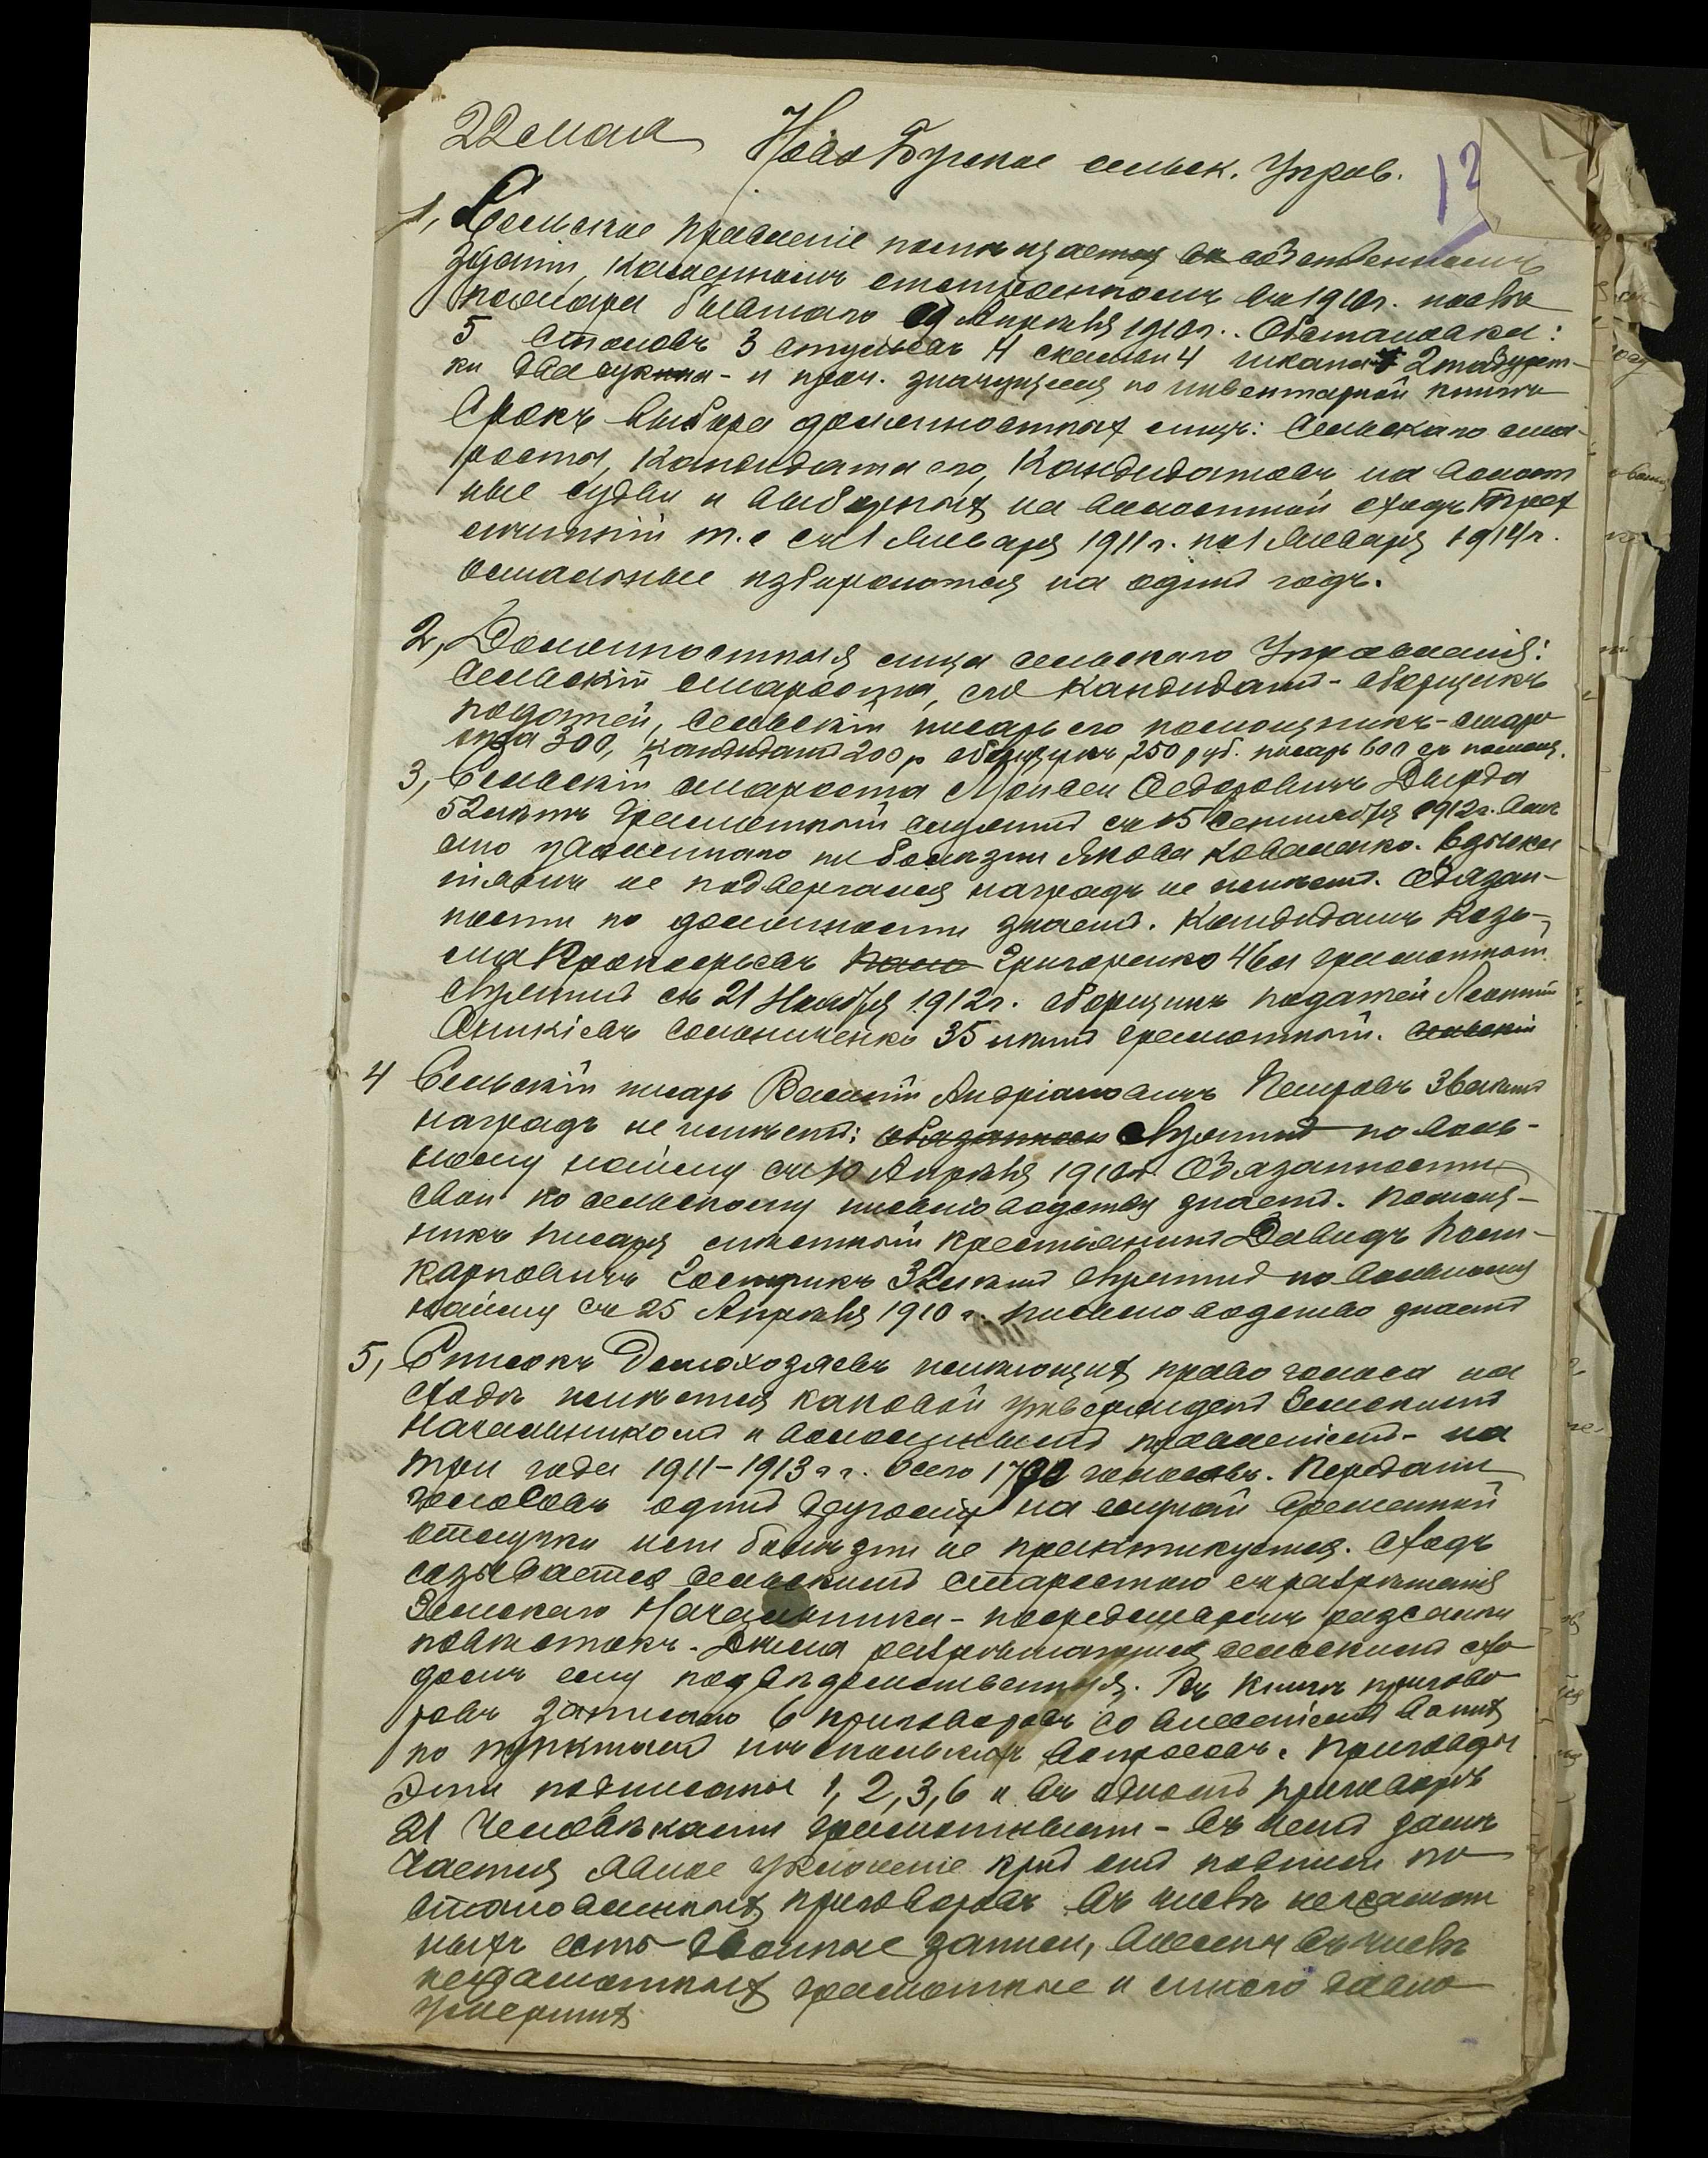 22 мая Ново Бугское сельск. Управ.
12
1, Сельское правленіе помѣщается въ собственномъ
зданіи, каменномъ отстроенномъ въ 1910г. послѣ
пожара бывшаго Апрѣля 1910г. Обстановки:
5 столовъ 3 стульевъ 4 скамьи 4 шкапа 2 табурет-
ки два сукна - и проч. значущееся по инвентарной книгѣ
Срокъ выбора должностныхъ лицъ: Сельскаго ста-
росты, Кандидата его, Кандидатовъ на волост
ные судьи и выборныхъ на волостной сходъ трех
лѣтній т.е съ 1 Января 1911 г. по 1 Января 1914 г.
остальные избираются на одинъ годъ.
2, Должностныя лица сельскаго Управленія:
Сельскій староста, его Кандидатъ - сборщикъ
податей, сельскій писарь его помощникъ - старо
ста 300, Кандидатъ 200 р сборщикъ 250 руб. писарь 600 съ помощ.
3, Сельскій староста Мойсей Федоровичъ Дырда
52 лѣтъ грамотный служитъ съ 15 Сентября 1912 г. вмѣ
сто уволеннаго по болѣзни Якова Коваленко. Взыска
ніямъ не подвергался наградъ не имѣетъ. Обязан-
ности по должности знаетъ. Кандидатъ Козь-
ма Прокофьевъ Григоренко 46 л грамотный
служитъ съ 21 Ноября 1912 г. сборщикъ податей Леонтій
Аникіевъ Соломиченко 35 лѣтъ грамотный. сельскій
4 Сельскій писарь Василій Андріановичъ Петровъ 38 лѣтъ
наградъ не имѣетъ; обязанности служитъ по воль-
ному найму съ 10 Апрѣля 1910 г. Обязанности
свои по сельскому письмоводству знаетъ. Помощ-
никъ писаря мѣстный крестьянинъ Давидъ Поли-
карповичъ Гострикъ 32 лѣтъ служитъ по вольному
найму съ 25 Апрѣля 1910 г. письмоводство знаетъ
5, Списокъ домохозяевъ имѣющихъ право голоса на
сходѣ имѣется каковой утвержденъ Земскимъ
Начальникомъ и волостнымъ правленіемъ - на
три года 1911-1913 г г. Всего голосовъ. Передачи
голосовъ однимъ другому на случай временной
отлучки или болѣзни не практикуется. Сходъ
созывается сельскимъ старостою съ разрѣшенія
Земскаго Начальника - посредствомъ разсылки
повѣстокъ. Дѣла разрѣшаются сельскимъ схо
домъ ему подвѣдомственныя. Въ книгѣ пригово
ровъ записано 6 приговоровъ со внесеніемъ въ нихъ
по пунктамъ нѣсколькихъ вопросовъ. Приговоры
эти подписаны 1, 2, 3, 6 и въ одномъ приговорѣ
21 человѣками грамотными - въ чемъ замѣ
чается явное уклоненіе при подписи по
становленныхъ приговоровъ въ числѣ неграмот
ныхъ есть двойные записи, внесены въ числѣ
неграмотныхъ грамотные и много давно
умершихъ